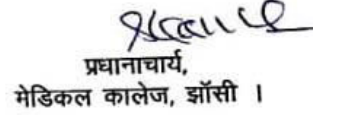 प्रधानाचार्य,
मेडिकल कालेज, झॉसी ।